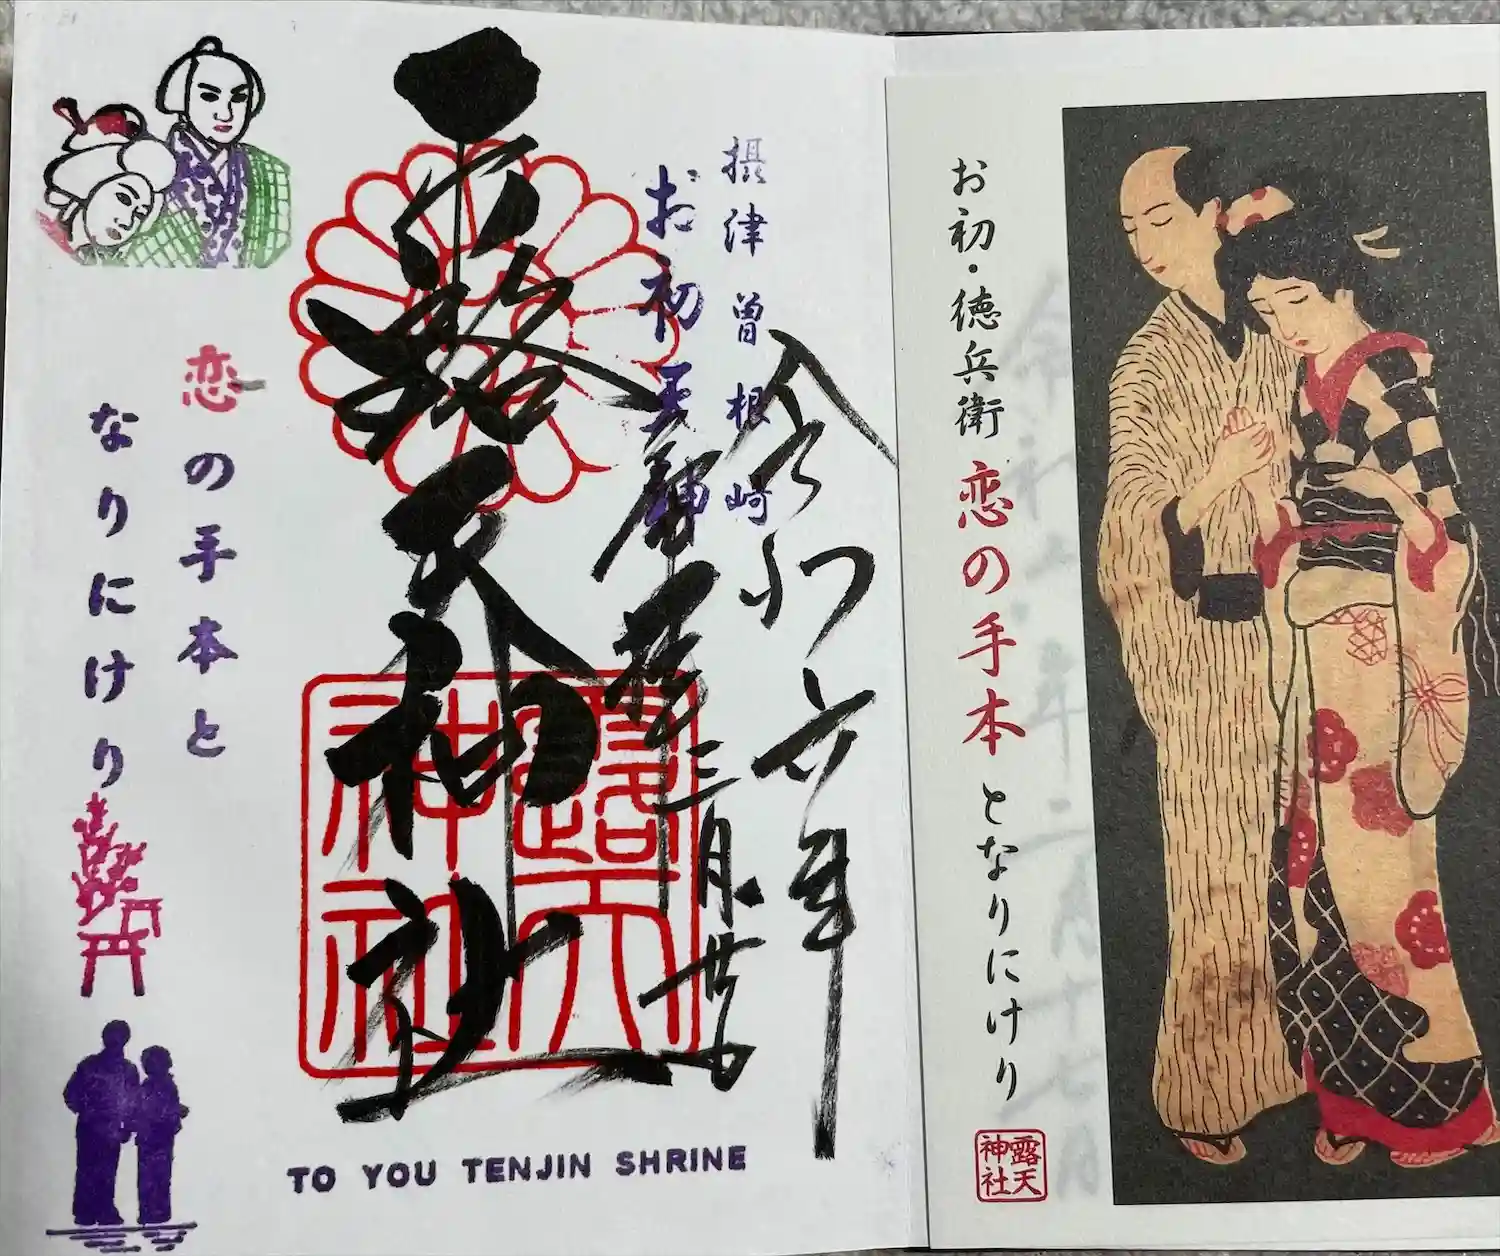 お初・徳兵衛 恋の手本 となりにけり
露天
神社
摂津曽根崎
お初天神
令和六年
三月廿
露天神社
露天
神社
恋の手本と
なりにけり
TO YOU TENJIN SHRINE